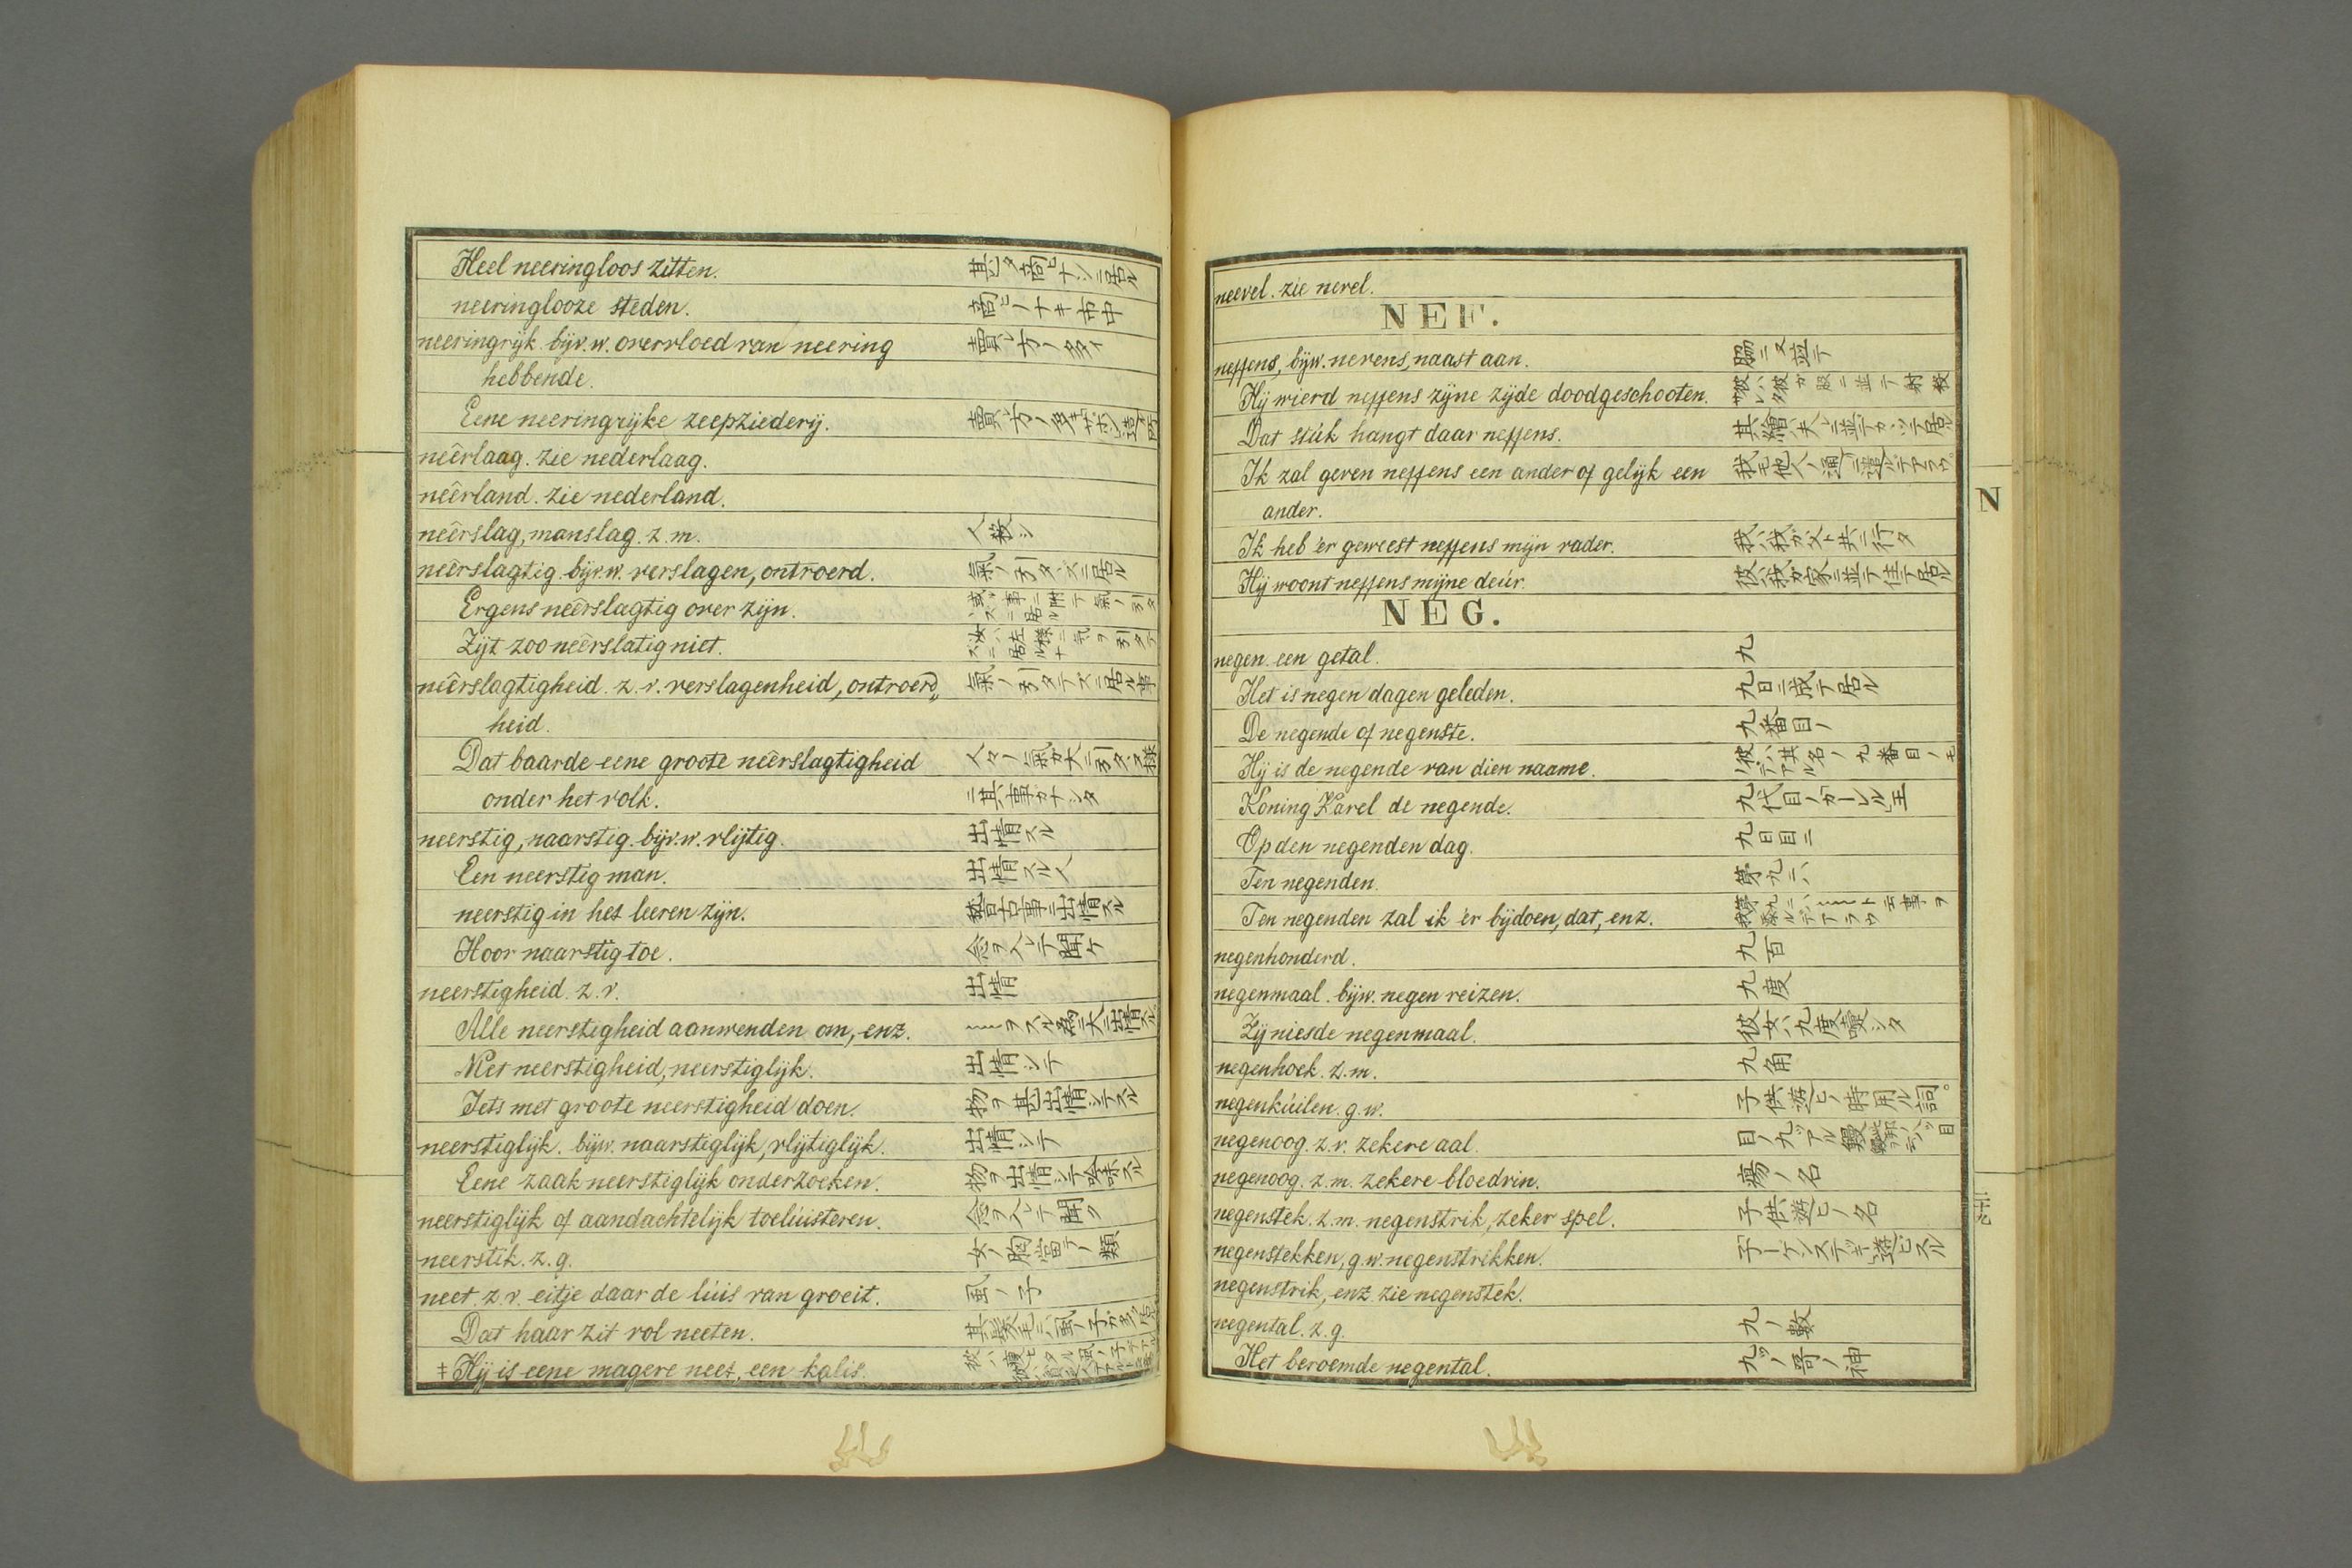 Heel neeringloos zitten. 甚タ商ヒナシニ居ル
neeringlooze steden. 商ヒノナキ市中
neeringrijk. bijv. w. overvloed van neering 賣レ方ノ多イ
hebbende.
Eene neeringrijke zeepziederij.
neêrlaag. zie nederlaag.
neêrland. zie nederland.
neêrslag, manslag. z. m. 人殺シ
neêrslagtig. bijv. w. verslagen, ontroerd. 氣ノ引タヽズニ居ル
Ergens neêrslagtig over zijn.
Zijt zoo neêrslatig niet.
neêrslagtigheid. z. v. verslagenheid, ontroerd„ 氣ノ引タテズニ居ル事
heid.
Dat baarde eene groote neêrslagtigheid
onder het volk. ニ其事ガナシタ
neerstig, naarstig. bijv. w. vlijtig. 出情スル
Een neerstig man. 出情スル人
neerstig in het leeren zijn. 稽古事ニ出情スル
Hoor naarstig toe. 念ヲ入レテ聞ケ
neerstigheid. z. v. 出情
Alle neerstigheid aanwenden om, enz. ヲスル為ニ大ニ出情スル
Met neerstigheid, neerstiglijk. 出情シテ
Iets met groote neerstigheid doen. 物ヲ甚出情シテスル
neerstiglijk. bijw. naarstiglijk, vlijtiglijk. 出情シテ
Eene zaak neerstiglijk onderzoeken. 物ヲ出情シテ吟味スル
neerstiglijk of aandachtelijk toelúisteren. 念ヲ入レテ聞ク
neerstik. z. g. 女ノ胸當テノ類
neet. z. v. eitje daar de lúis van groeit. 虱ノ子
Dat haar zit vol neeten.
‡ Hij is eene magere neet, een kalis.
neevel. zie nevel.
NEF.
neffens, bijw. nevens, naast aan. 脇ニ又並テ
Hij wierd neffens zijne zijde doodgeschooten.
Dat stúk hangt daar neffens. 其繪ハ夫レニ並テカヽツテ居ル
Ik zal geven neffens een ander of gelijk een
ander.
Ik heb 'er geweest neffens mijn vader. 我ハ我ガ父ト共ニ行タ
Hij woont neffens mijne deúr. 彼ハ我ガ家ニ並テ住テ居ル
NEG.
N
negen. een getal. 九
Het is negen dagen geleden. 九日ニ成テ居ル
De negende of negenste. 九番目ノ
Hij is de negende van dien naame. 彼ハ其名ノ九番目ノモノデアル
Koning Karel de negende. 九代目ノ「カーレル」王
Op den negenden dag. 九日目ニ
Ten negenden. 第九ニハ
Ten negenden zal ik 'er bijdoen, dat, enz.
negenhonderd. 九百
negenmaal. bijw. negen reizen. 九度
Zij niesde negenmaal. 彼女ハ九度嚏シタ
negenhoek. z. m. 九角
negenkúilen. g. w. 子供遊ヒノ時用ル詞。
negenoog. z. v. zekere aal.
negenoog. z. m. zekere bloedvin. 瘍ノ名
negenstek. z. m. negenstrik, zeker spel. 子供遊ヒノ名
negenstekken, g. w. negenstrikken.
negenstrik, enz. zie negenstek.
negental. z. g. 九ノ數
Het beroemde negental. 九ツノ哥ノ神